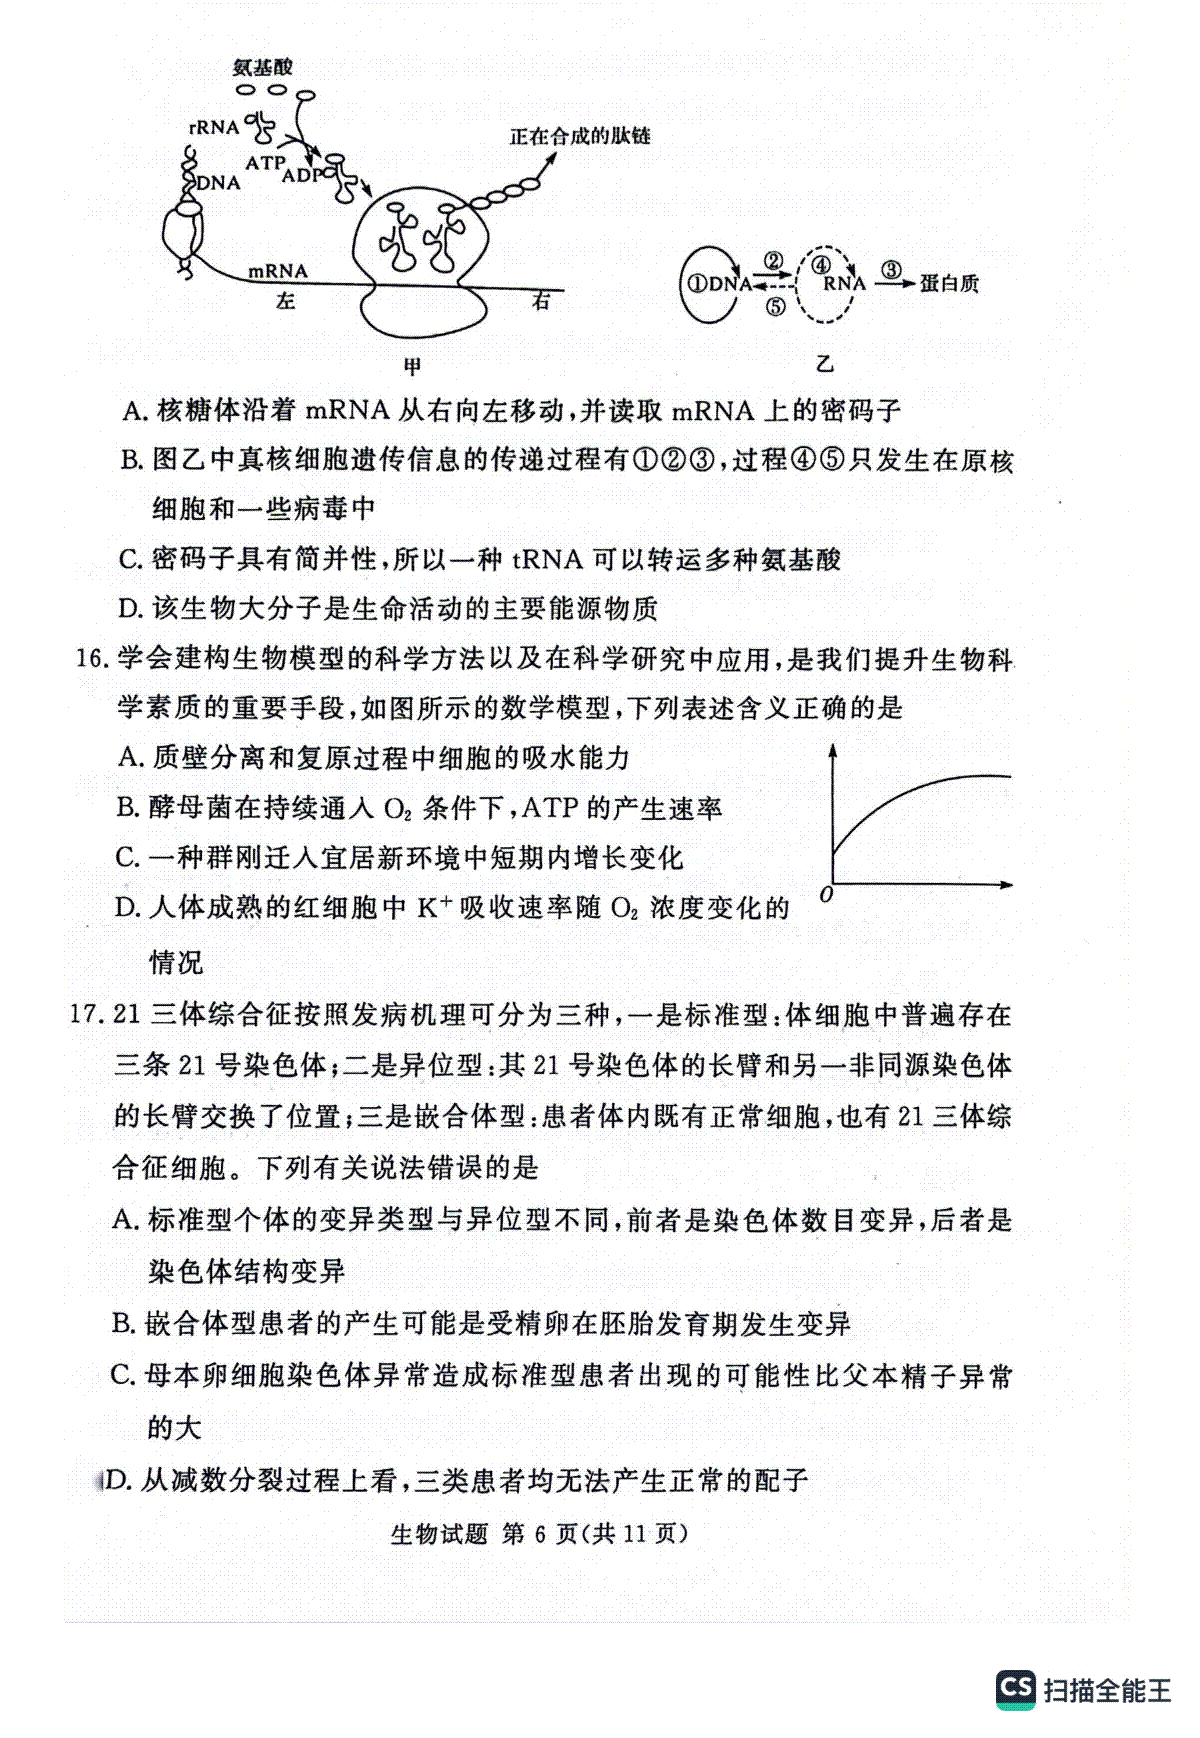 氨基酸
rRNA
正在合成的肽链
ATP
ADP
DNA
mRNA
左
右
甲
①DNA
②
④
RNA
③
蛋白质
⑤
乙
A. 核糖体沿着 mRNA 从右向左移动,并读取 mRNA 上的密码子
B. 图乙中真核细胞遗传信息的传递过程有①②③,过程④⑤只发生在原核
细胞和一些病毒中
C. 密码子具有简并性,所以一种 tRNA 可以转运多种氨基酸
D. 该生物大分子是生命活动的主要能源物质
16. 学会建构生物模型的科学方法以及在科学研究中应用,是我们提升生物科
学素质的重要手段,如图所示的数学模型,下列表述含义正确的是
A. 质壁分离和复原过程中细胞的吸水能力
B. 酵母菌在持续通入 O₂ 条件下,ATP 的产生速率
C. 一种群刚迁入宜居新环境中短期内增长变化
D. 人体成熟的红细胞中 K⁺ 吸收速率随 O₂ 浓度变化的
情况
O
17. 21 三体综合征按照发病机理可分为三种,一是标准型:体细胞中普遍存在
三条 21 号染色体;二是异位型:其 21 号染色体的长臂和另一非同源染色体
的长臂交换了位置;三是嵌合体型:患者体内既有正常细胞,也有 21 三体综
合征细胞。下列有关说法错误的是
A. 标准型个体的变异类型与异位型不同,前者是染色体数目变异,后者是
染色体结构变异
B. 嵌合体型患者的产生可能是受精卵在胚胎发育期发生变异
C. 母本卵细胞染色体异常造成标准型患者出现的可能性比父本精子异常
的大
D. 从减数分裂过程上看,三类患者均无法产生正常的配子
生物试题 第 6 页(共 11 页)
CS 扫描全能王